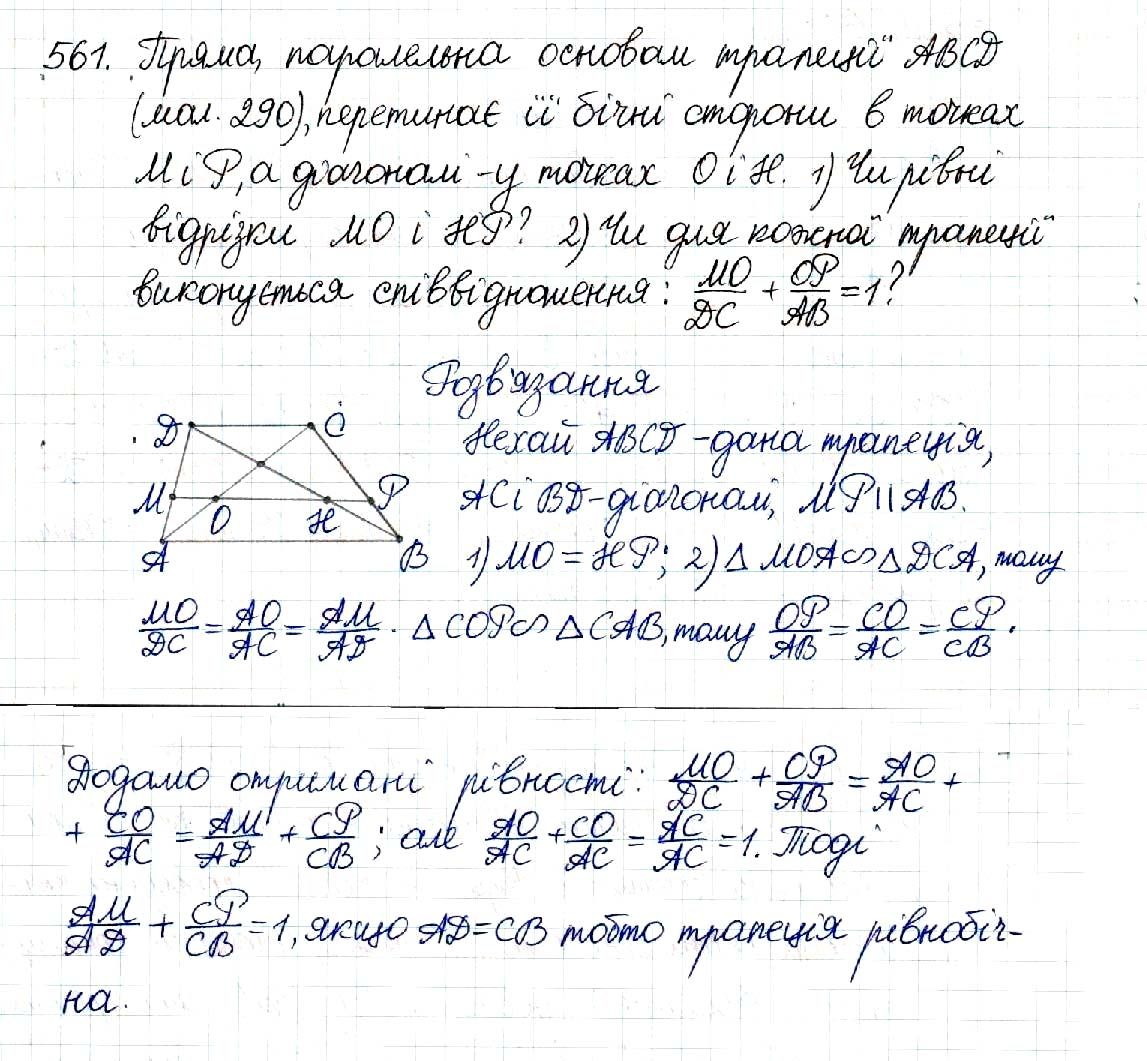 561. Пряма, паралельна основам трапеції ABCD
(мал. 290), перетинає її бічні сторони в точках
M і P, а діагоналі - у точках O і H. 1) Чи рівні
відрізки MO і HP? 2) Чи для кожної трапеції
виконується співвідношення: MO/DC + OP/AB = 1?
Розв'язання
D C
M O H P
A B
Нехай ABCD - дана трапеція,
AC і BD - діагоналі, MP || AB.
1) MO = HP; 2) △ MOA ∽ △ DCA, тому
MO/DC = AO/AC = AM/AD. △ COP ∽ △ CAB, тому OP/AB = CO/AC = CP/CB.
Додамо отримані рівності: MO/DC + OP/AB = AO/AC +
+ CO/AC = AM/AD + CP/CB; але AO/AC + CO/AC = AC/AC = 1. Тоді
AM/AD + CP/CB = 1, якщо AD = CB тобто трапеція рівнобіч-
на.